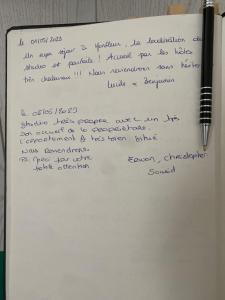 le 01/05/2023
Un super séjour à Honfleur, la localisation du
studio est parfaite ! Accueil par les hôtes
très chaleureux !!! Nous reviendrons sans hésiter
Lucile & Benjamin
le 08/05/2023
Studio très propre avec un très
bon accueil de la propriétaire.
L'appartement est très bien situé
Nous Reviendrons.
Merci pour votre
petite attention
Erwan, Christopher